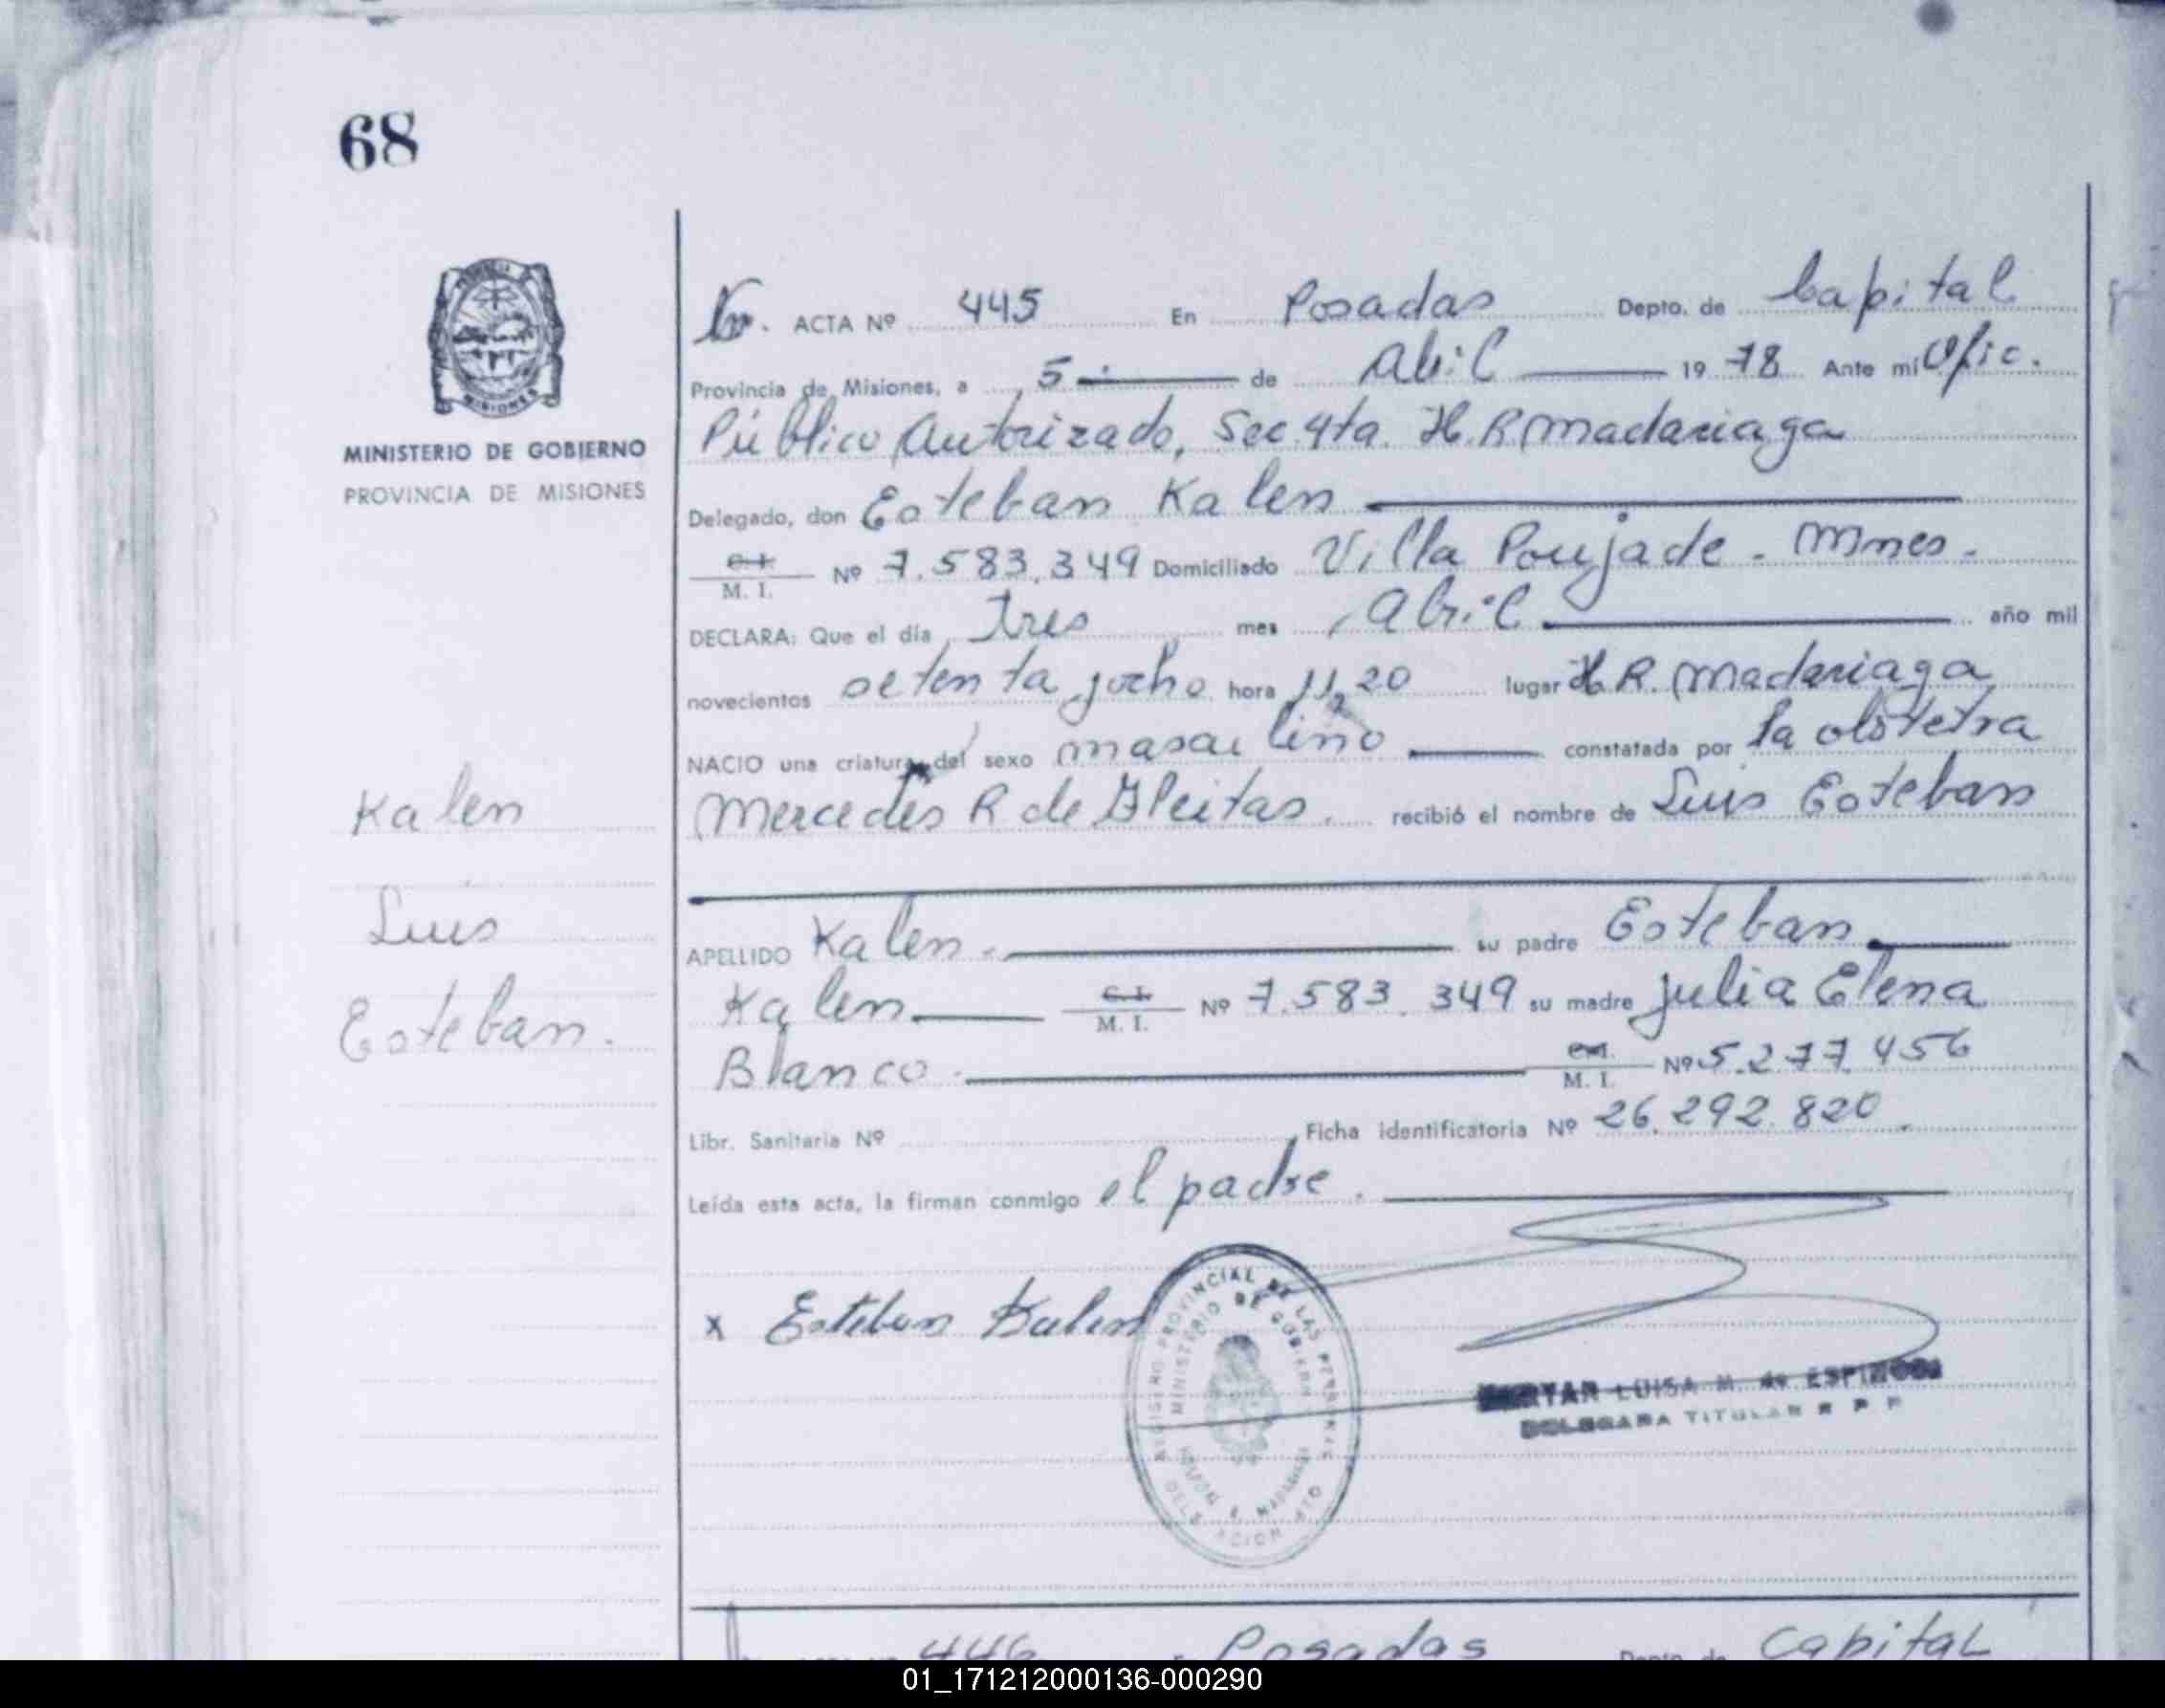 68
MINISTERIO DE GOBIERNO
PROVINCIA DE MISIONES
ACTA Nº 445 En Posadas Depto. de Capital
Provincia de Misiones, a 5 de Abril 1978 Ante mi Ofic.
Público Autorizado, Sec. 4ta. H. R. Madariaga
Delegado, don Esteban Kalen
C. I.
M. I. Nº 7.583.349 Domiciliado Villa Poujade - Mnes -
DECLARA: Que el día Tres mes Abril año mil
novecientos setenta y ocho hora 11,20 lugar H. R. Madariaga
NACIO una criatura del sexo masculino constatada por la obstetra
Mercedes R de Gleitas. recibió el nombre de Luis Esteban
Kalen
Luis
Esteban.
APELLIDO Kalen. su padre Esteban
Kalen C. I.
M. I. Nº 7.583.349 su madre Julia Elena
Blanco. M. I. Nº 5.277.456
Libr. Sanitaria Nº Ficha identificatoria Nº 26.292.820.
Leída esta acta, la firman conmigo el padre.
x Esteban Kalen
REGISTRO PROVINCIAL DE LAS PERSONAS
MINISTERIO DE GOBIERNO
LUISA M. de ESPINOSA
DELEGADA TITULAR R P P
446 Posadas Depto. de Capital
01_171212000136-000290